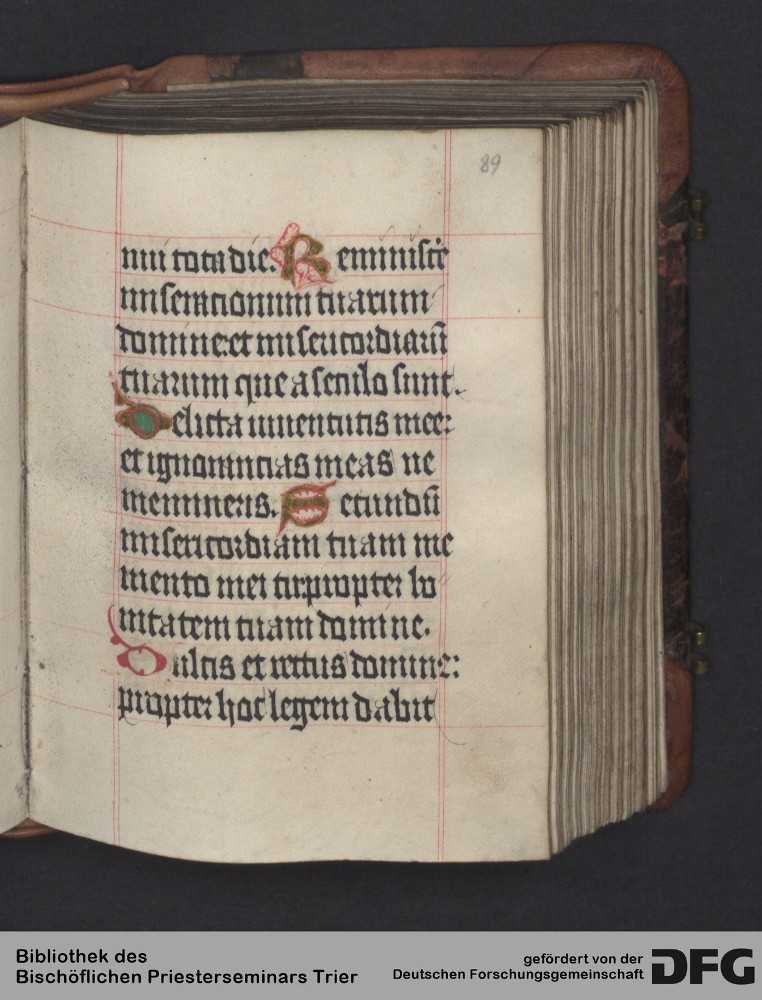 89
nui tota die. Reminisce
miserationum tuarum
domine: et misericordiarū
tuarum que a seculo sunt.
Delicta iuuentutis mee:
et ignorantias meas ne
memineris. Secundū
misericordiam tuam me
mento mei tu: propter bo
nitatem tuam domine.
Dulcis et rectus domine:
propter hoc legem dabit
Bibliothek des
Bischöflichen Priesterseminars Trier
gefördert von der
Deutschen Forschungsgemeinschaft
DFG